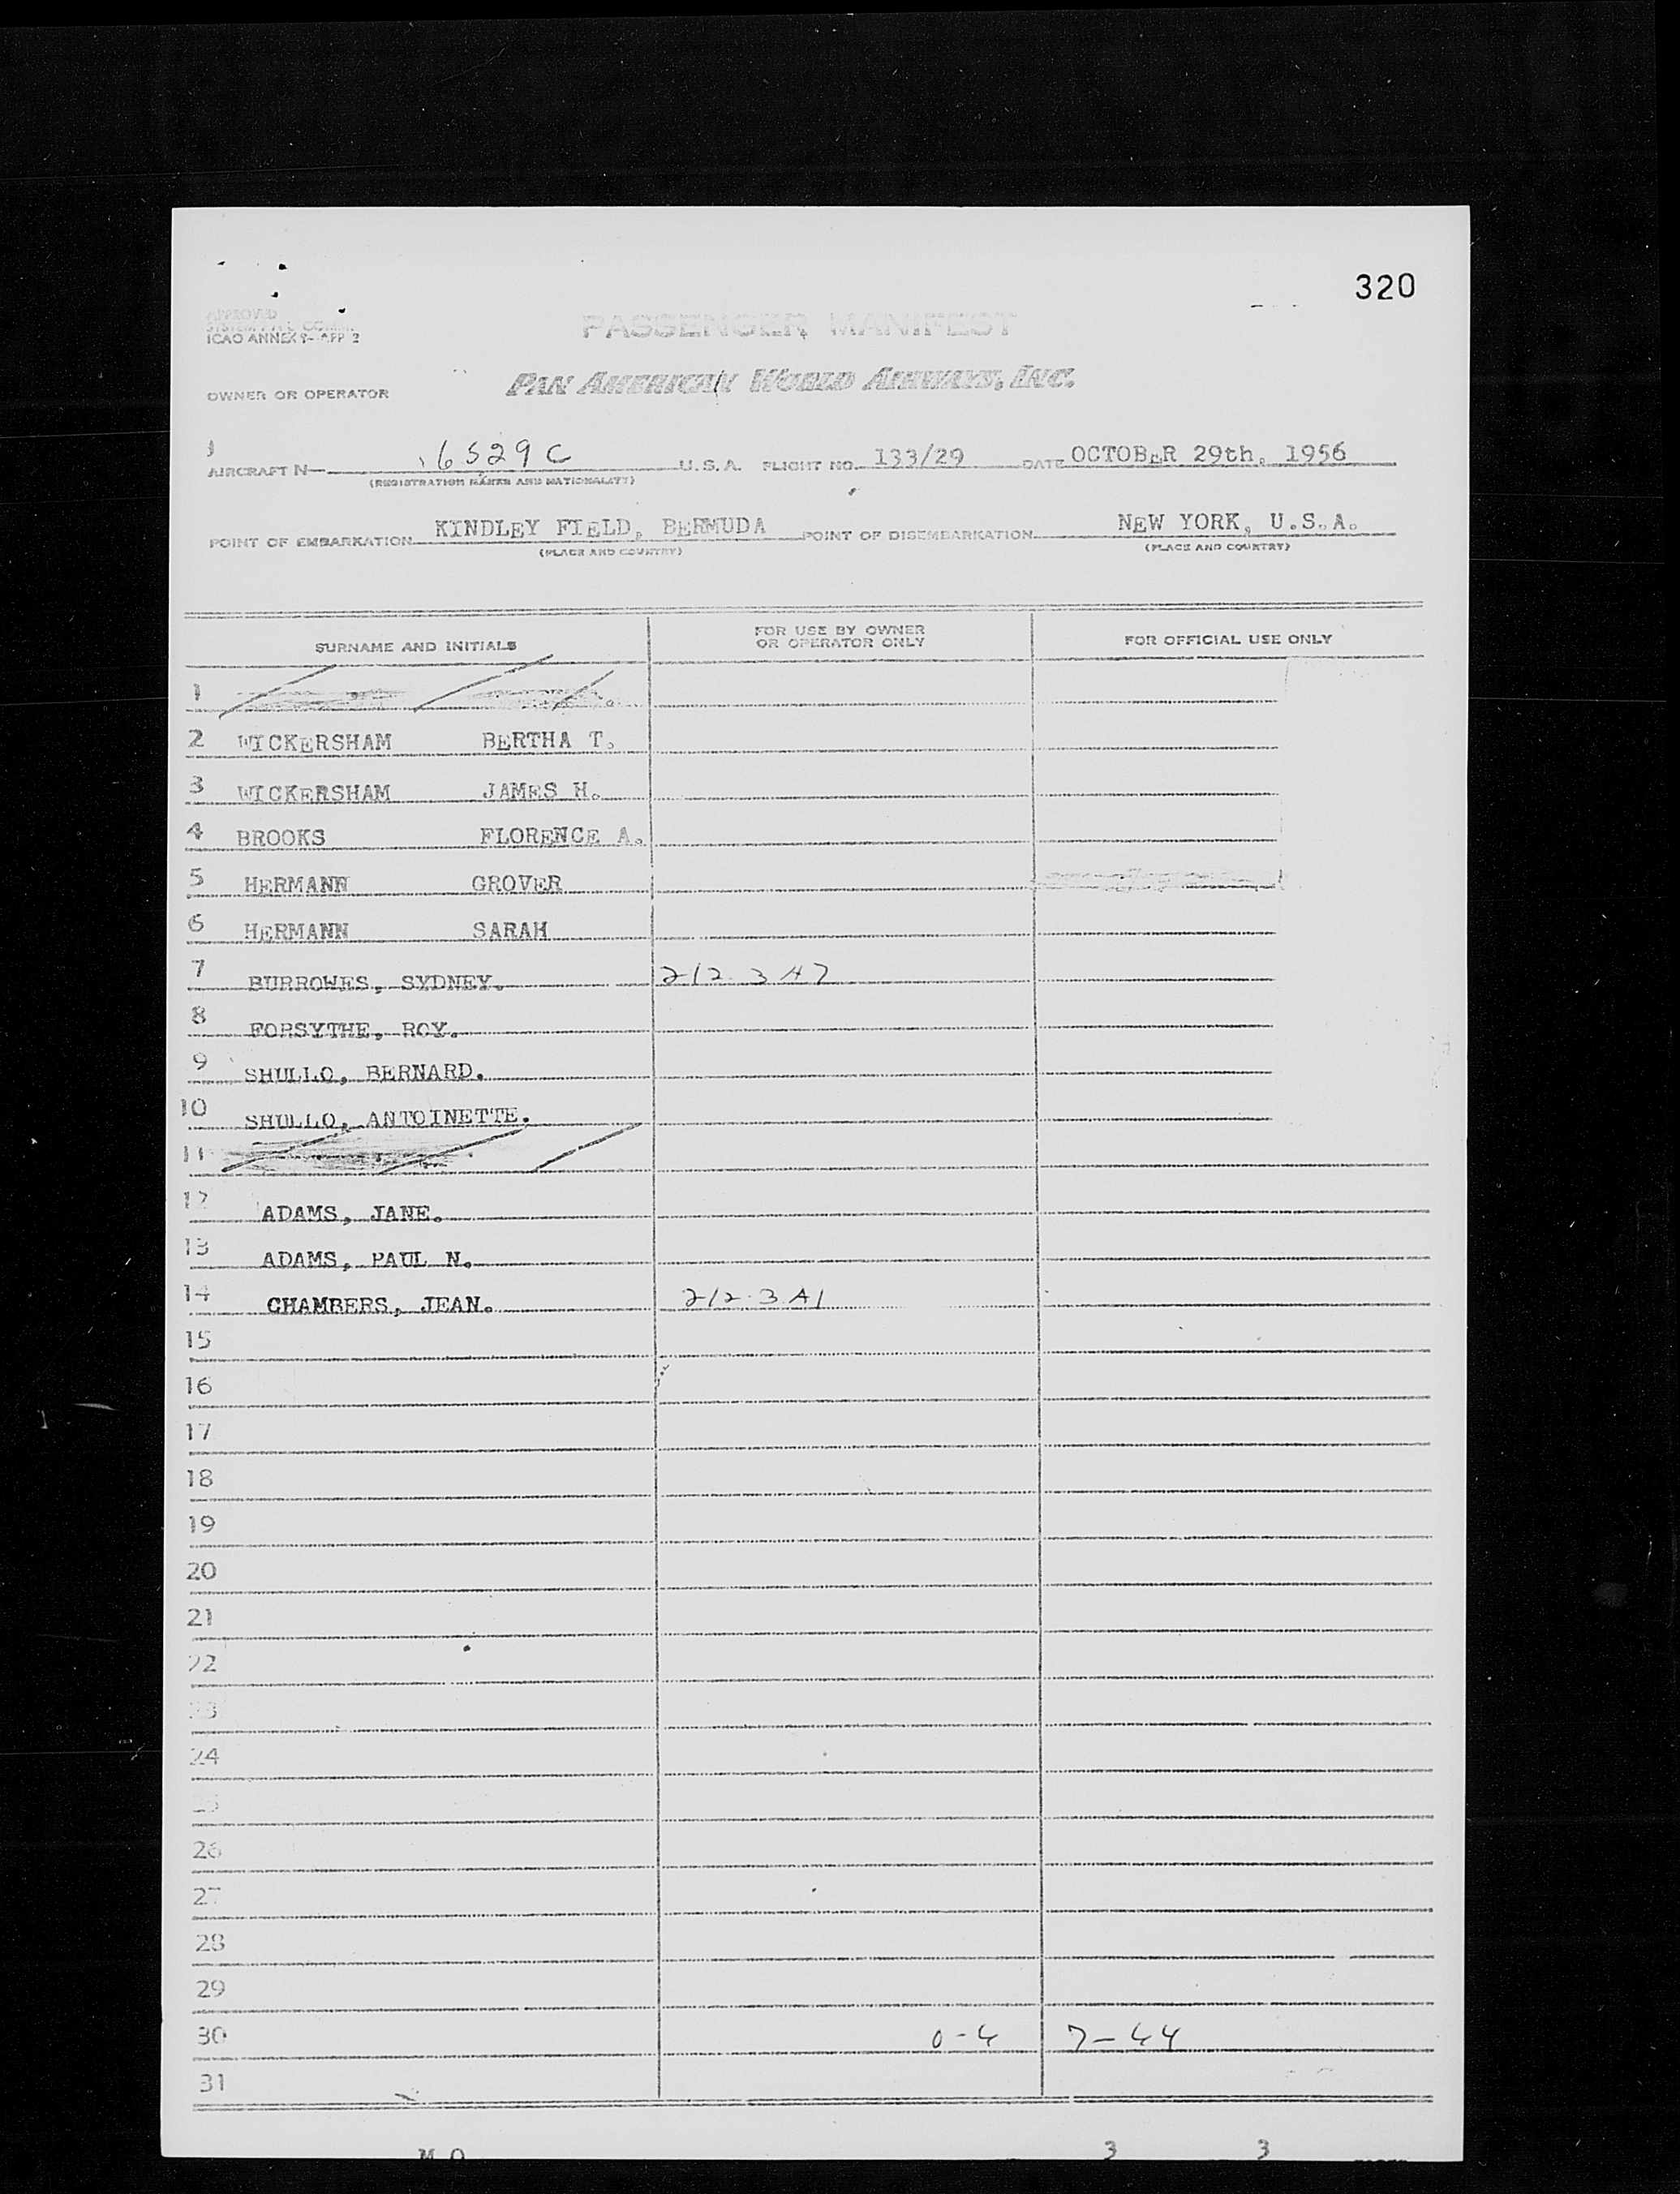 320
APPROVED
ICAO ANNEX 9- APP 2
PASSENGER MANIFEST
OWNER OR OPERATOR PAN AMERICAN WORLD AIRWAYS, INC.
AIRCRAFT N 6529C U.S.A. FLIGHT NO. 133/29 DATE OCTOBER 29th, 1956
(REGISTRATION MARKS AND NATIONALITY)
POINT OF EMBARKATION KINDLEY FIELD, BERMUDA POINT OF DISEMBARKATION NEW YORK, U.S.A.
(PLACE AND COUNTRY) (PLACE AND COUNTRY)
SURNAME AND INITIALS FOR USE BY OWNER OR OPERATOR ONLY FOR OFFICIAL USE ONLY
1
2 WICKERSHAM BERTHA T.
3 WICKERSHAM JAMES H.
4 BROOKS FLORENCE A.
5 HERMANN GROVER
6 HERMANN SARAH
7 BURROWES, SYDNEY. 212.3 A7
8 FORSYTHE, ROY.
9 SHULLO, BERNARD.
10 SHULLO, ANTOINETTE.
11
12 ADAMS, JANE.
13 ADAMS, PAUL N.
14 CHAMBERS, JEAN. 212.3 A1
15
16
17
18
19
20
21
22
23
24
25
26
27
28
29
30 0-4 7-44
31
M O 3 3